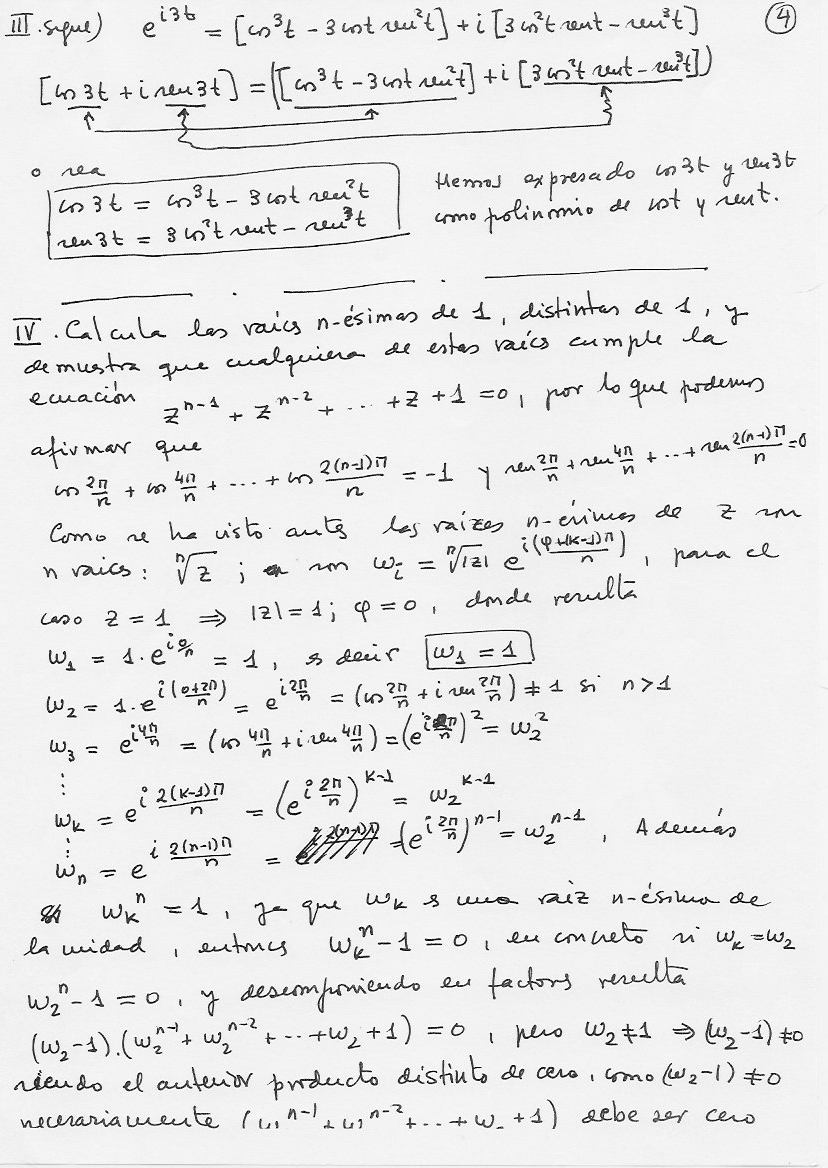 III. sigue) e^{i3t} = [cos³t - 3cost sen²t] + i [3cos²t sent - sen³t] ④
[cos 3t + i sen 3t] = ([cos³t - 3cost sen²t] + i [3cos²t sent - sen³t])
o sea
cos 3t = cos³t - 3cost sen²t
sen 3t = 3cos²t sent - sen³t
Hemos expresado cos 3t y sen 3t
como polinomio de cost y sent.
IV. Calcula las raíces n-ésimas de 1, distintas de 1, y
demuestra que cualquiera de estas raíces cumple la
ecuación z^{n-1} + z^{n-2} + ... + z + 1 = 0, por lo que podemos
afirmar que
cos 2π/n + cos 4π/n + ... + cos 2(n-1)π/n = -1 y sen 2π/n + sen 4π/n + ... + sen 2(n-1)π/n = 0
Como se ha visto antes las raízes n-ésimas de z son
n raíces: ⁿ√z ; son w_i = ⁿ√|z| e^{i(φ+(k-1)π/n)}, para el
caso z = 1 ⇒ |z| = 1; φ = 0, donde resulta
w₁ = 1·e^{i0/n} = 1, es decir w₁ = 1
w₂ = 1·e^{i(0+2π/n)} = e^{i2π/n} = (cos 2π/n + i sen 2π/n) ≠ 1 si n > 1
w₃ = e^{i4π/n} = (cos 4π/n + i sen 4π/n) = (e^{i2π/n})² = w₂²
⋮
w_k = e^{i 2(k-1)π/n} = (e^{i 2π/n})^{k-1} = w₂^{k-1}
⋮
w_n = e^{i 2(n-1)π/n} = (e^{i 2π/n})^{n-1} = w₂^{n-1}, Además
w_k^n = 1, ya que w_k es una raíz n-ésima de
la unidad, entonces w_k^n - 1 = 0, en concreto si w_k = w₂
w₂^n - 1 = 0, y descomponiendo en factores resulta
(w₂-1)·(w₂^{n-1} + w₂^{n-2} + ... + w₂ + 1) = 0, pero w₂ ≠ 1 ⇒ (w₂-1) ≠ 0
siendo el anterior producto distinto de cero, como (w₂-1) ≠ 0
necesariamente (w^{n-1} + w^{n-2} + ... + w + 1) debe ser cero